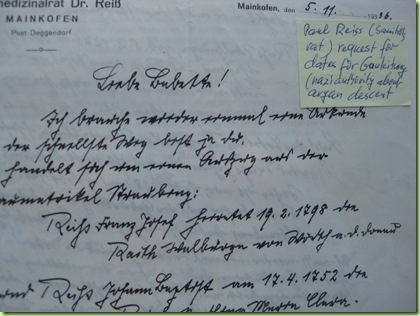 medizinalrat Dr. Reiß
MAINKOFEN
Post Deggendorf
Mainkofen, den 5. 11. 1936.
Paul Reiss (sanitäts
rat) request for
dates for Gauleitung
(nazi authority about
aryan descent
Liebe Babette!
Ich brauche wieder einmal eine Urkunde
der schnellste Weg bist ja du.
handelt sich um einen Auszug aus der
aumatrikel Straubing:
Reihs Franz Josef heiratet 19. 2. 1798 die
Raith Walburga von Wörth a. d. Donau
Reihs Johann Baptist am 17. 4. 1752 die
Maria Clara.